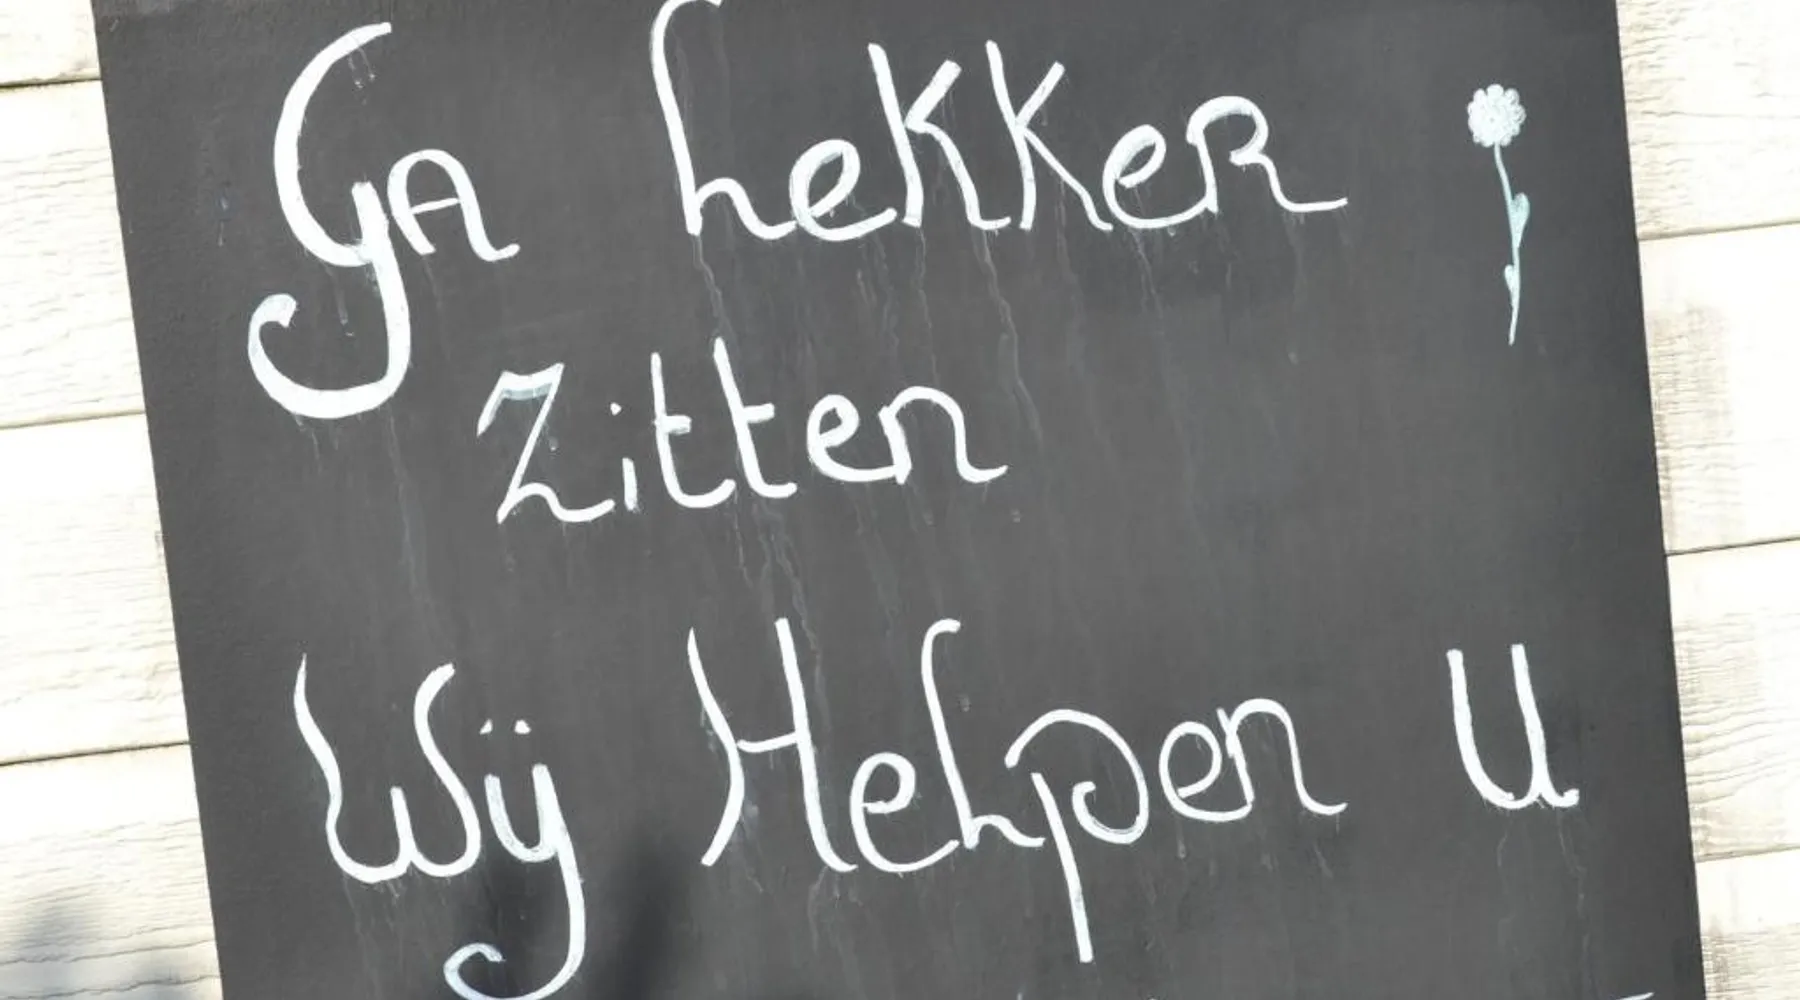 Ga Lekker
Zitten
Wij Helpen U